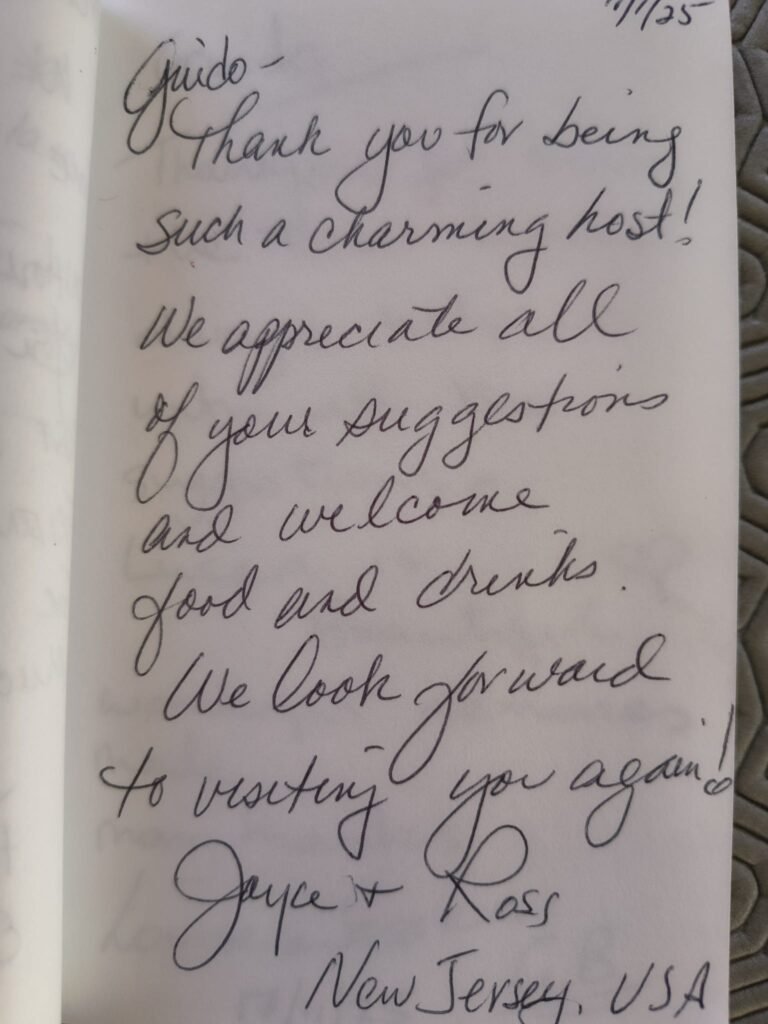 7/7/25
Guido-
Thank you for being
such a charming host!
We appreciate all
of your suggestions
and welcome
food and drinks.
We look forward
to visiting you again!
Joyce + Ross
New Jersey, USA